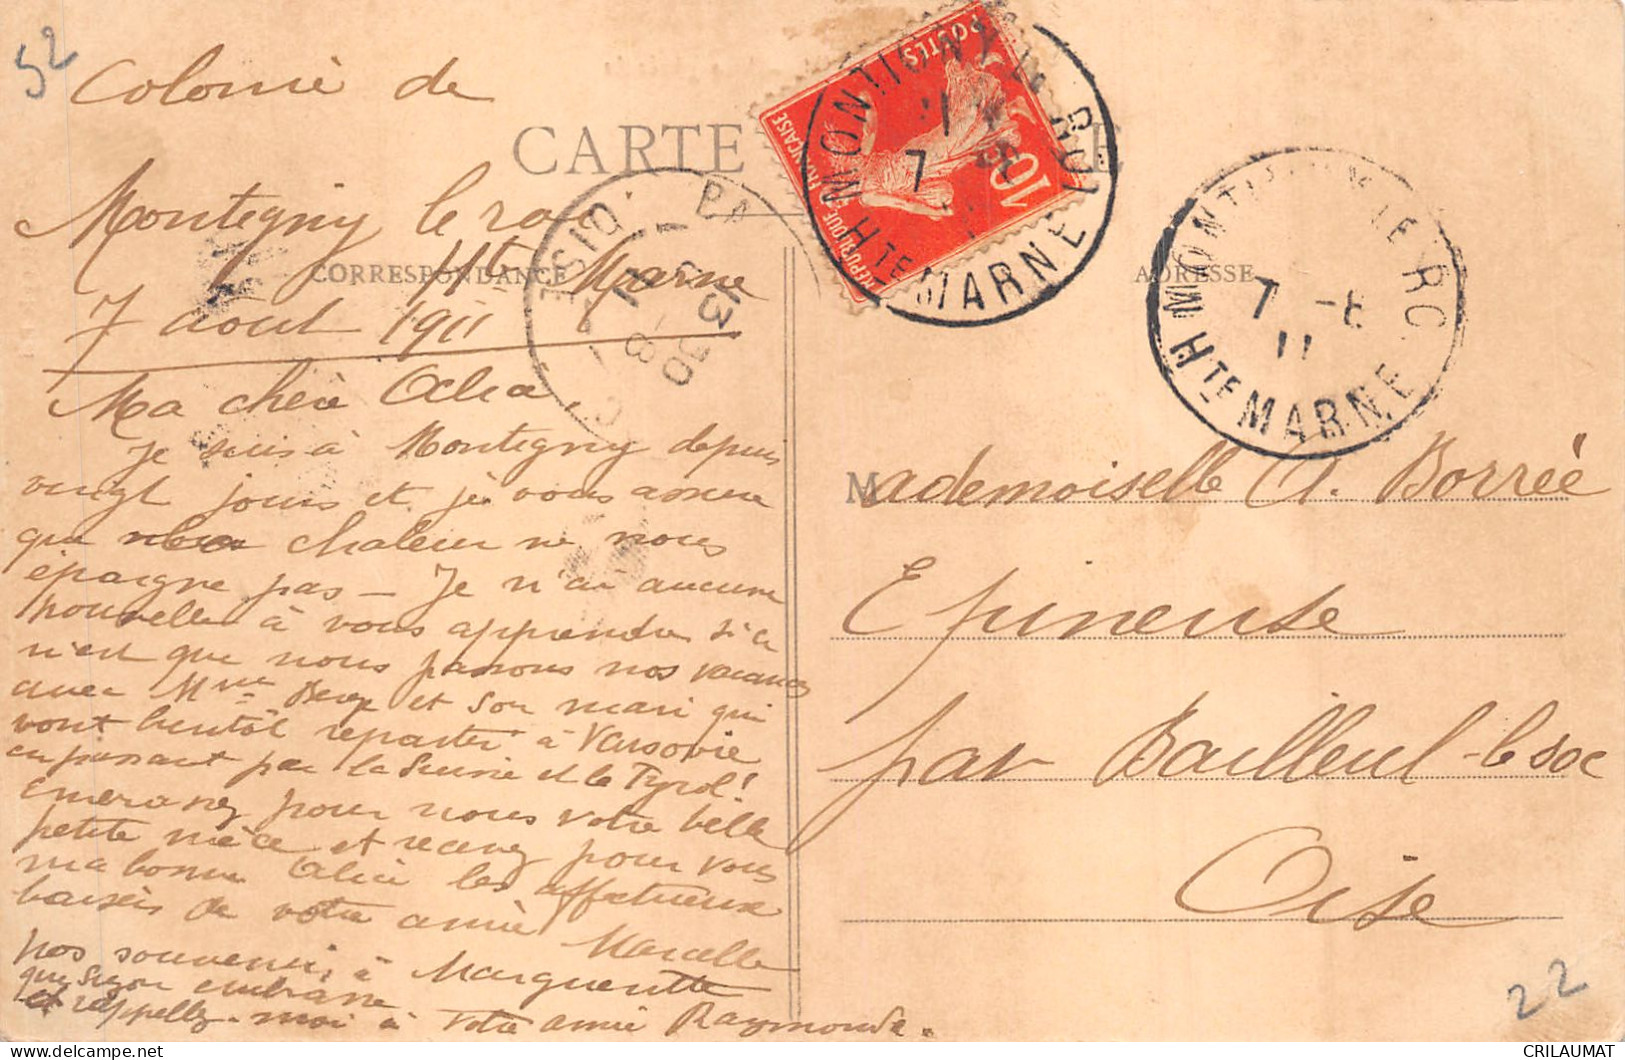 52
Colonie de
CARTE
Montigny le roi
CORRESPONDANCE
Hte Marne
7 août 1911
Ma chère Alice,
je suis à Montigny depuis
vingt jours et je vous assure
que chaleur ne nous
épargne pas — Je n'ai aucune
nouvelle à vous apprendre si ce
n'est que nous passons nos vacances
avec Mme et son mari qui
vont bientôt repartir à Varsovie
en passant par la Suisse et le Tyrol!
Embrassez pour nous votre belle
petite nièce et recevez pour vous
ma bonne Alice les affectueux
baisers de votre amie Marcelle
nos souvenirs à Marguerite
que Suzon embrasse
et rappellez-moi à votre amie Raymonde.
POSTES
10
REPUBLIQUE FRANÇAISE
MONTIGNY LE ROI
7
HTE MARNE
OISE
13 30
8
ADRESSE
MONTIGNY LE ROI
7 -8
11
HTE MARNE
Mademoiselle A. Borrée
Epineuse
par Bailleul-le soc
Oise
22
CRILAUMAT